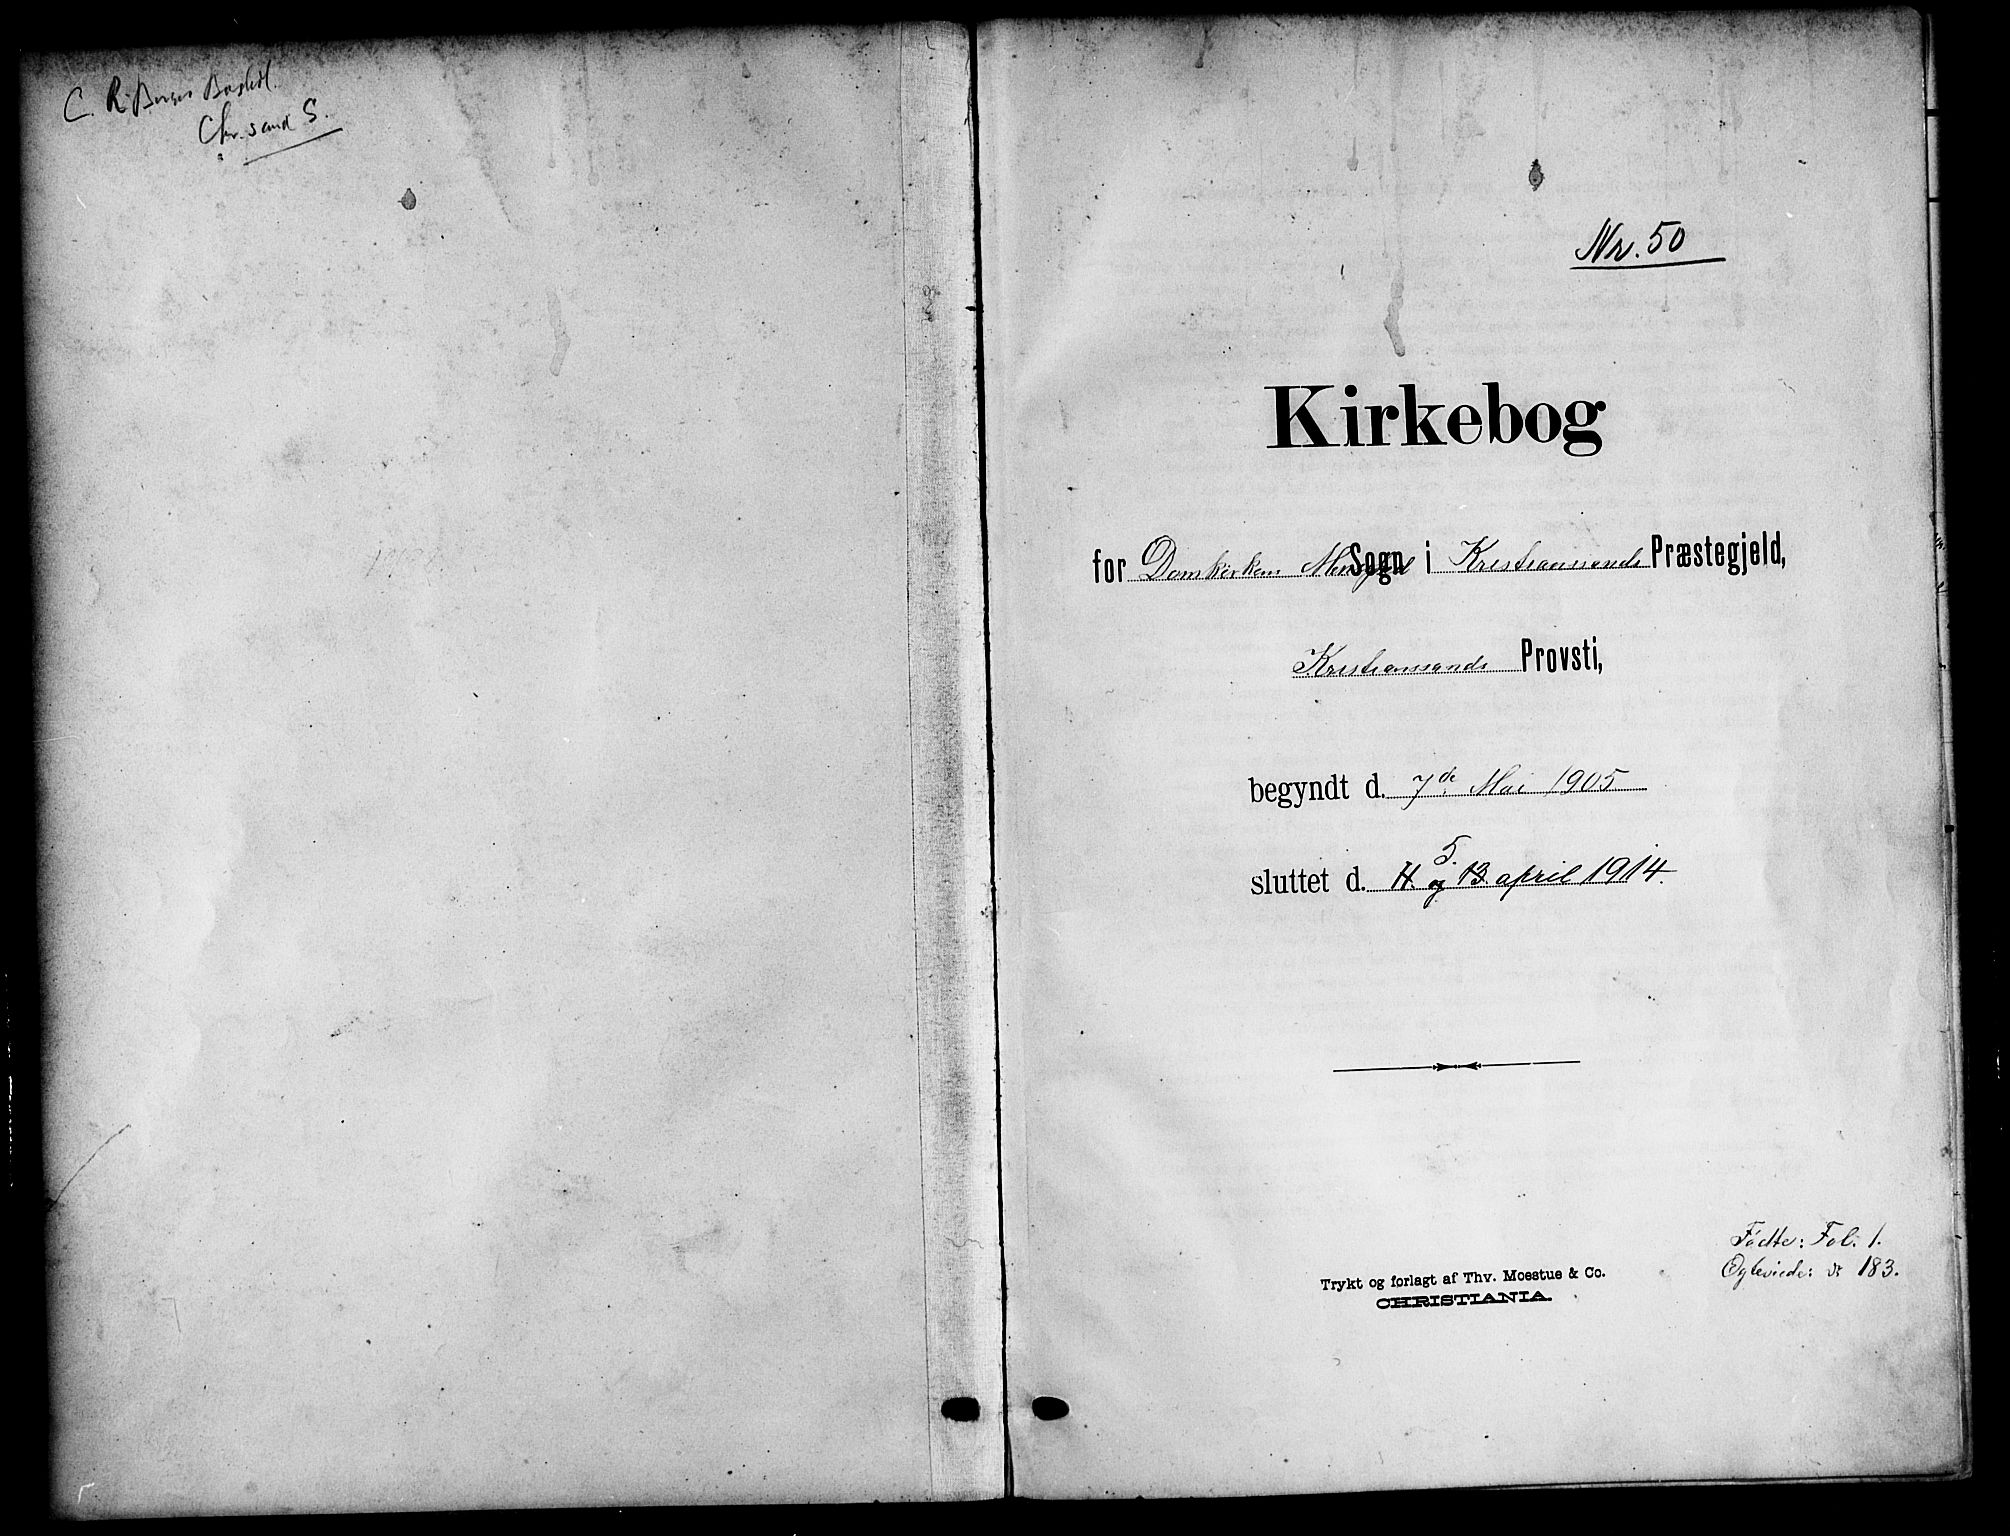 C. R. Berger
Chr.sand S.
Nr. 50
Kirkebog
for Domkirkens Menighed Sogn i Kristianssands Præstegjeld,
Kristianssands Provsti,
begyndt d. 7de Mai 1905
5.
sluttet d. og 13. april 1914.
Fødte: Fol. 1.
Ogteviede: " 183.
Trykt og forlagt af Thv. Moestue & Co.
CHRISTIANIA.